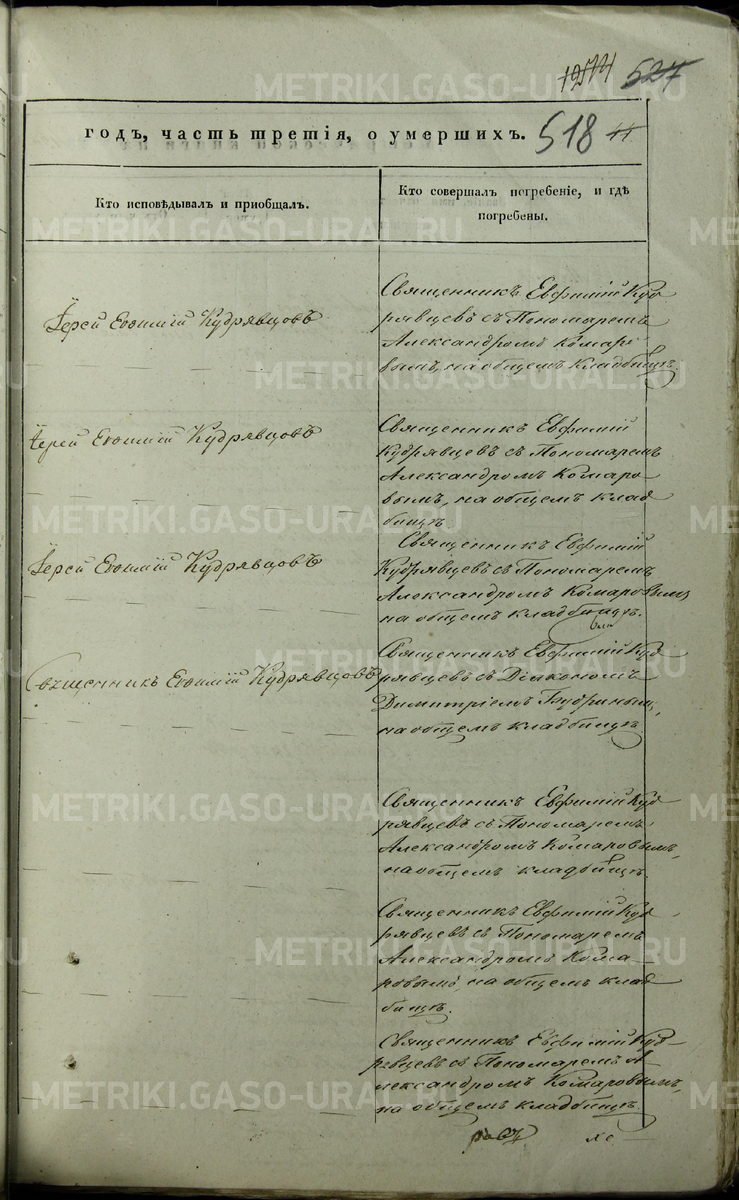 527
годъ, часть третія, о умершихъ.
518
Кто исповѣдывалъ и приобщалъ.
Кто совершалъ погребеніе, и гдѣ
погребены.
Іерей Евѳимій Кудрявцовъ
Священникъ Евфимій Куд
рявцевъ съ Пономаремъ
Александромъ Комаро-
вымъ, на общемъ Кладбищѣ.
Іерей Евѳимій Кудрявцовъ
Священникъ Евфимій
Кудрявцевъ съ Пономаремъ
Александромъ Комаро-
вымъ, на общемъ клад
бищѣ.
Іерей Евѳимій Кудрявцовъ
Священникъ Евфимій
Кудрявцевъ съ Пономаремъ
Александромъ Комаровымъ
на общемъ кладбищѣ.
Священникъ Евѳимій Кудрявцовъ
Священникъ Евфимій Куд
рявцевъ съ Діакономъ
Димитріемъ
на общемъ кладбищѣ.
Священникъ Евфимій Куд
рявцевъ съ Пономаремъ
Александромъ Комаровымъ,
на общемъ кладбищѣ.
Священникъ Евфимій Куд
рявцевъ съ Пономаремъ
Александромъ Кома-
ровымъ, на общемъ клад
бищѣ.
Священникъ Евфимій Куд-
ревцевъ съ Пономаремъ А-
лександромъ Комаровымъ,
на общемъ кладбищѣ.
METRIKI.GASO-URAL.RU